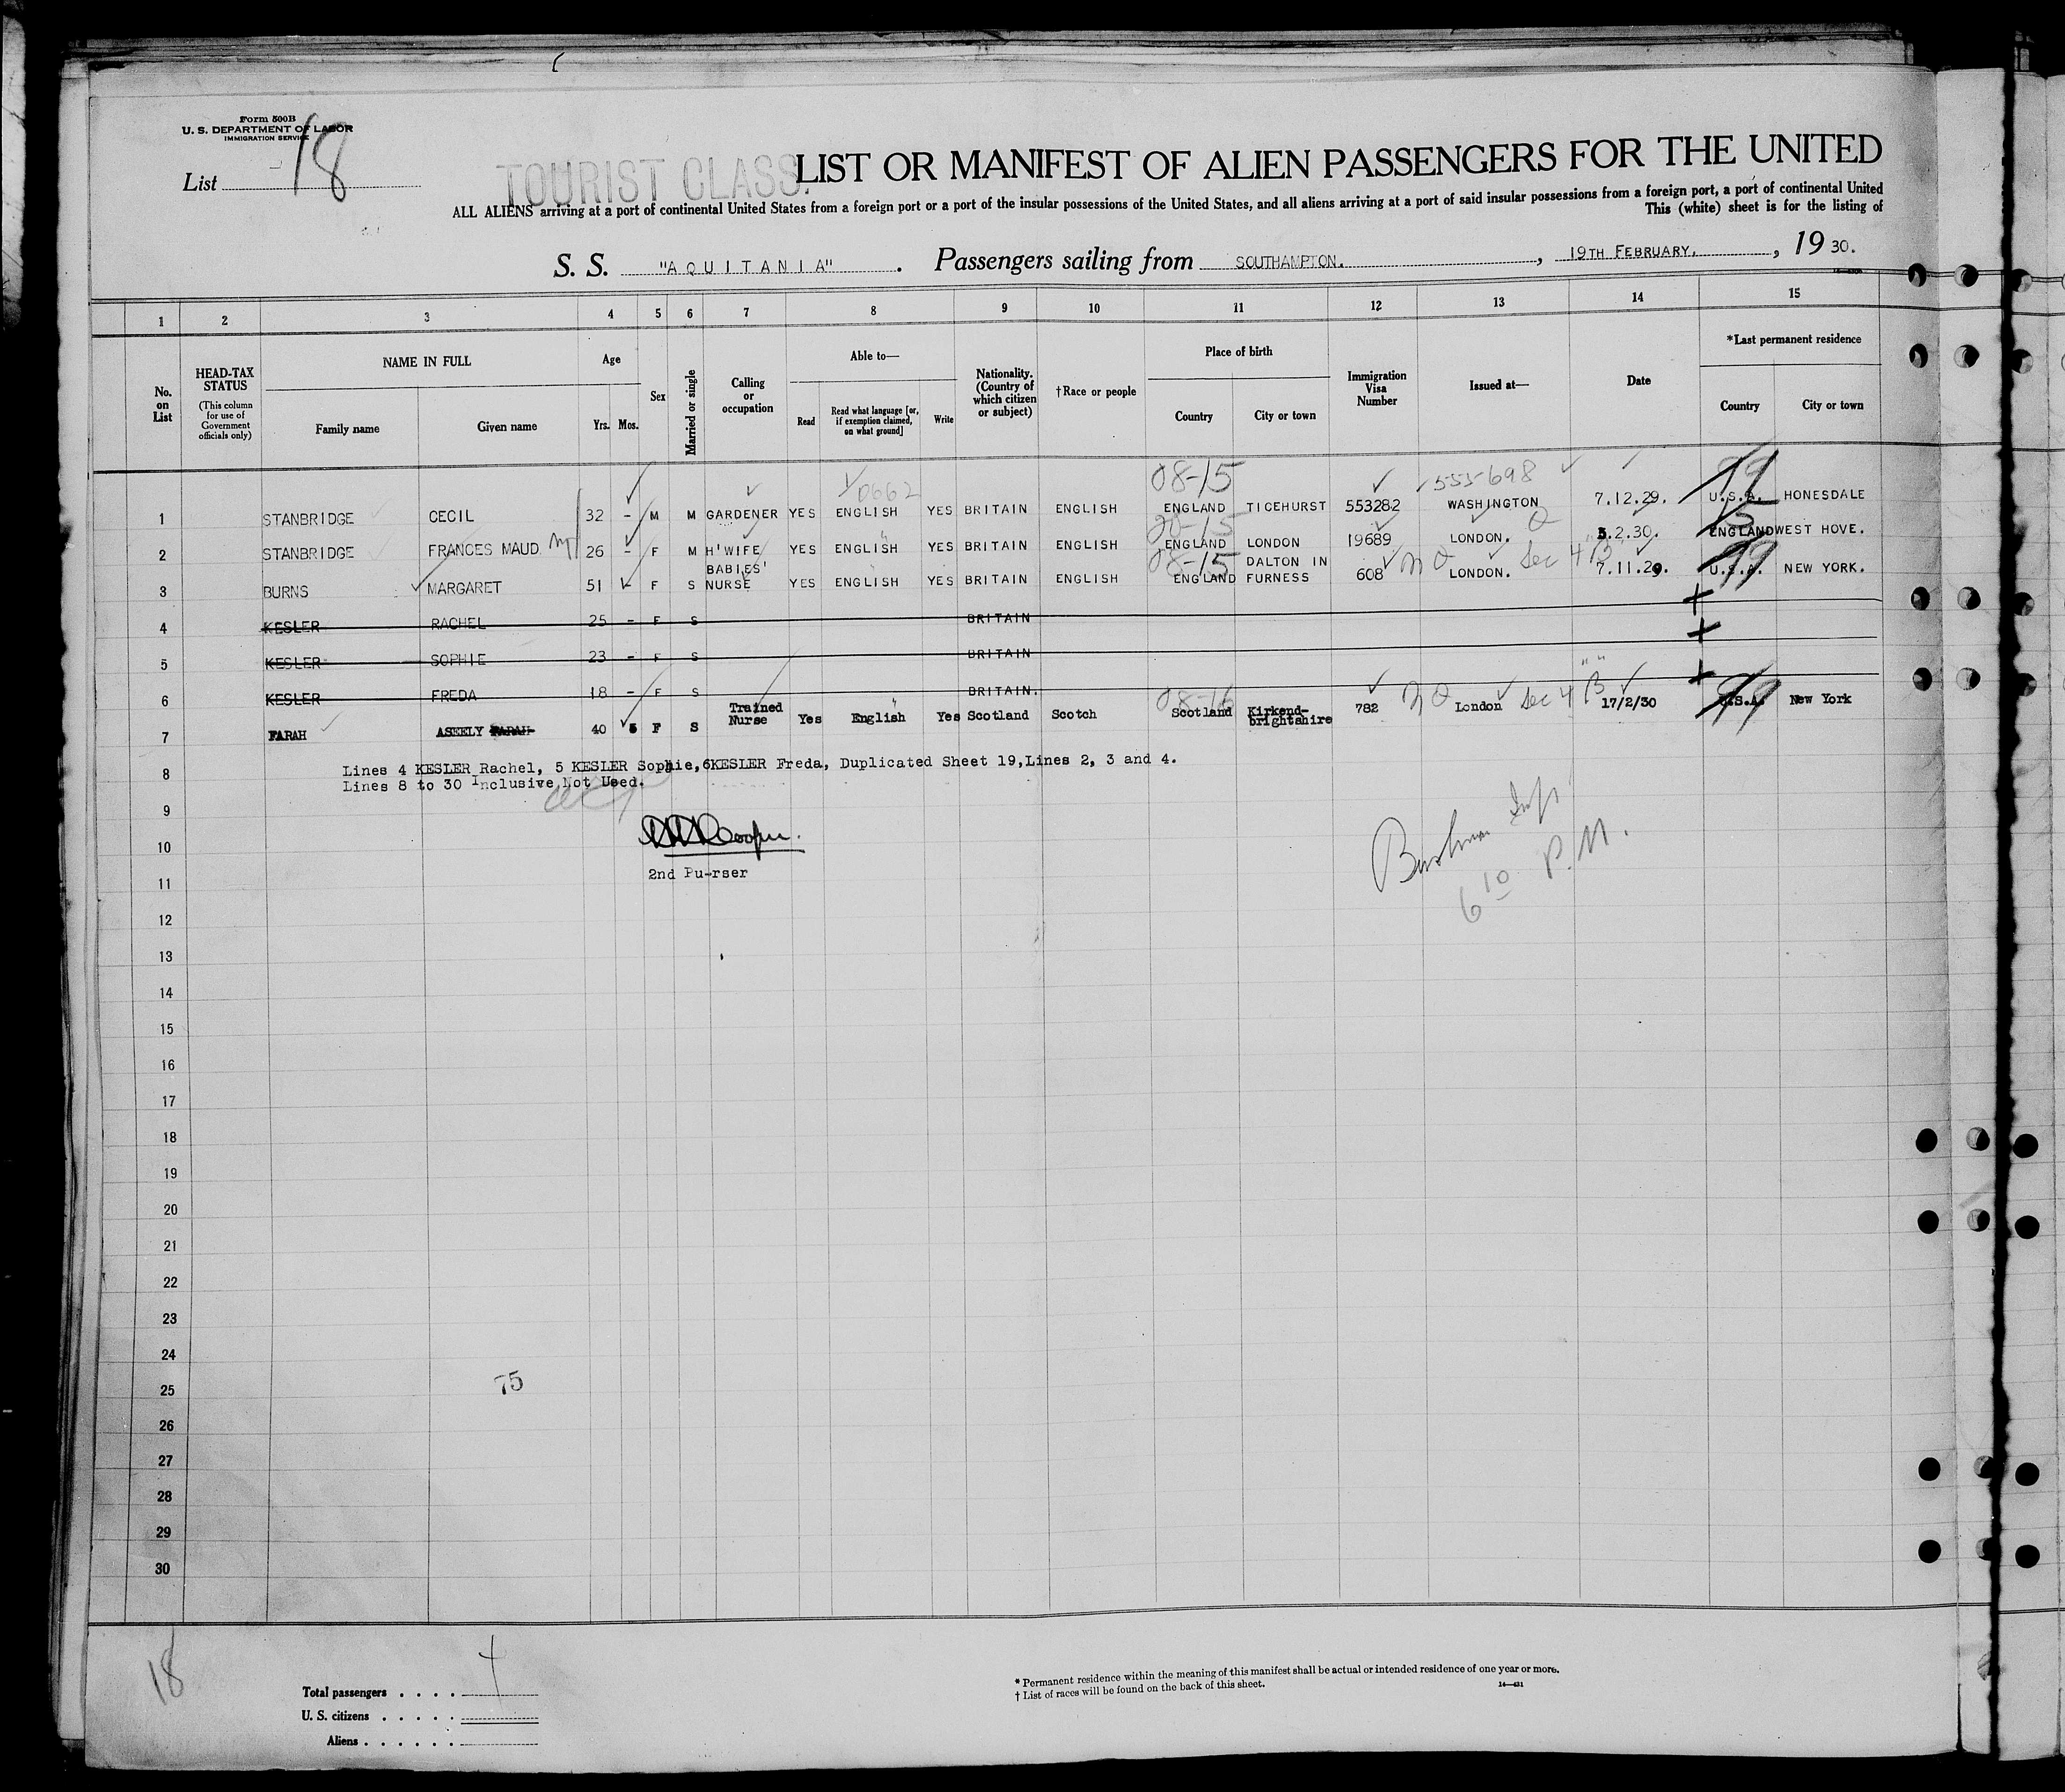 Form 500B
U. S. DEPARTMENT OF LABOR
IMMIGRATION SERVICE
List 18
TOURIST CLASS.
LIST OR MANIFEST OF ALIEN PASSENGERS FOR THE UNITED
ALL ALIENS arriving at a port of continental United States from a foreign port or a port of the insular possessions of the United States, and all aliens arriving at a port of said insular possessions from a foreign port, a port of continental United
This (white) sheet is for the listing of
S. S. "AQUITANIA". Passengers sailing from SOUTHAMPTON., 19TH FEBRUARY., 1930.
1 2 3 4 5 6 7 8 9 10 11 12 13 14 15
No. on List
HEAD-TAX STATUS
(This column for use of Government officials only)
NAME IN FULL
Family name
Given name
Age
Yrs. Mos.
Sex
Married or single
Calling or occupation
Able to—
Read
Read what language [or, if exemption claimed, on what ground]
Write
Nationality. (Country of which citizen or subject)
†Race or people
Place of birth
Country
City or town
Immigration Visa Number
Issued at—
Date
*Last permanent residence
Country
City or town
0662 08-15 555-698 99
1 STANBRIDGE CECIL 32 - M M GARDENER YES ENGLISH YES BRITAIN ENGLISH ENGLAND TICEHURST 553282 WASHINGTON 7.12.29. U.S.A. HONESDALE
20-15 15
2 STANBRIDGE FRANCES MAUD 26 - F M H'WIFE YES ENGLISH YES BRITAIN ENGLISH ENGLAND LONDON 19689 LONDON. 5.2.30. ENGLAND WEST HOVE.
08-15 Sec 4 B 99
3 BURNS MARGARET 51 - F S BABIES' NURSE YES ENGLISH YES BRITAIN ENGLISH ENGLAND DALTON IN FURNESS 608 LONDON. 7.11.29. U.S.A. NEW YORK.
4 KESLER RACHEL 25 - F S BRITAIN
5 KESLER SOPHIE 23 - F S BRITAIN
6 KESLER FREDA 18 - F S BRITAIN.
08-16 Sec 4 B 99
7 FARAH ASEELY FARAH 40 5 F S Trained Nurse Yes English Yes Scotland Scotch Scotland Kirkend-brightshire 782 London 17/2/30 U.S.A. New York
8 Lines 4 KESLER Rachel, 5 KESLER Sophie, 6KESLER Freda, Duplicated Sheet 19,Lines 2, 3 and 4.
Lines 8 to 30 Inclusive,Not Used.
9
10
2nd Pu-rser
11
6 10 P.M.
12
13
14
15
16
17
18
19
20
21
22
23
24
75
25
26
27
28
29
30
18
Total passengers . . . . 4
U. S. citizens . . . . .
Aliens . . . . . .
* Permanent residence within the meaning of this manifest shall be actual or intended residence of one year or more.
† List of races will be found on the back of this sheet.
14—431